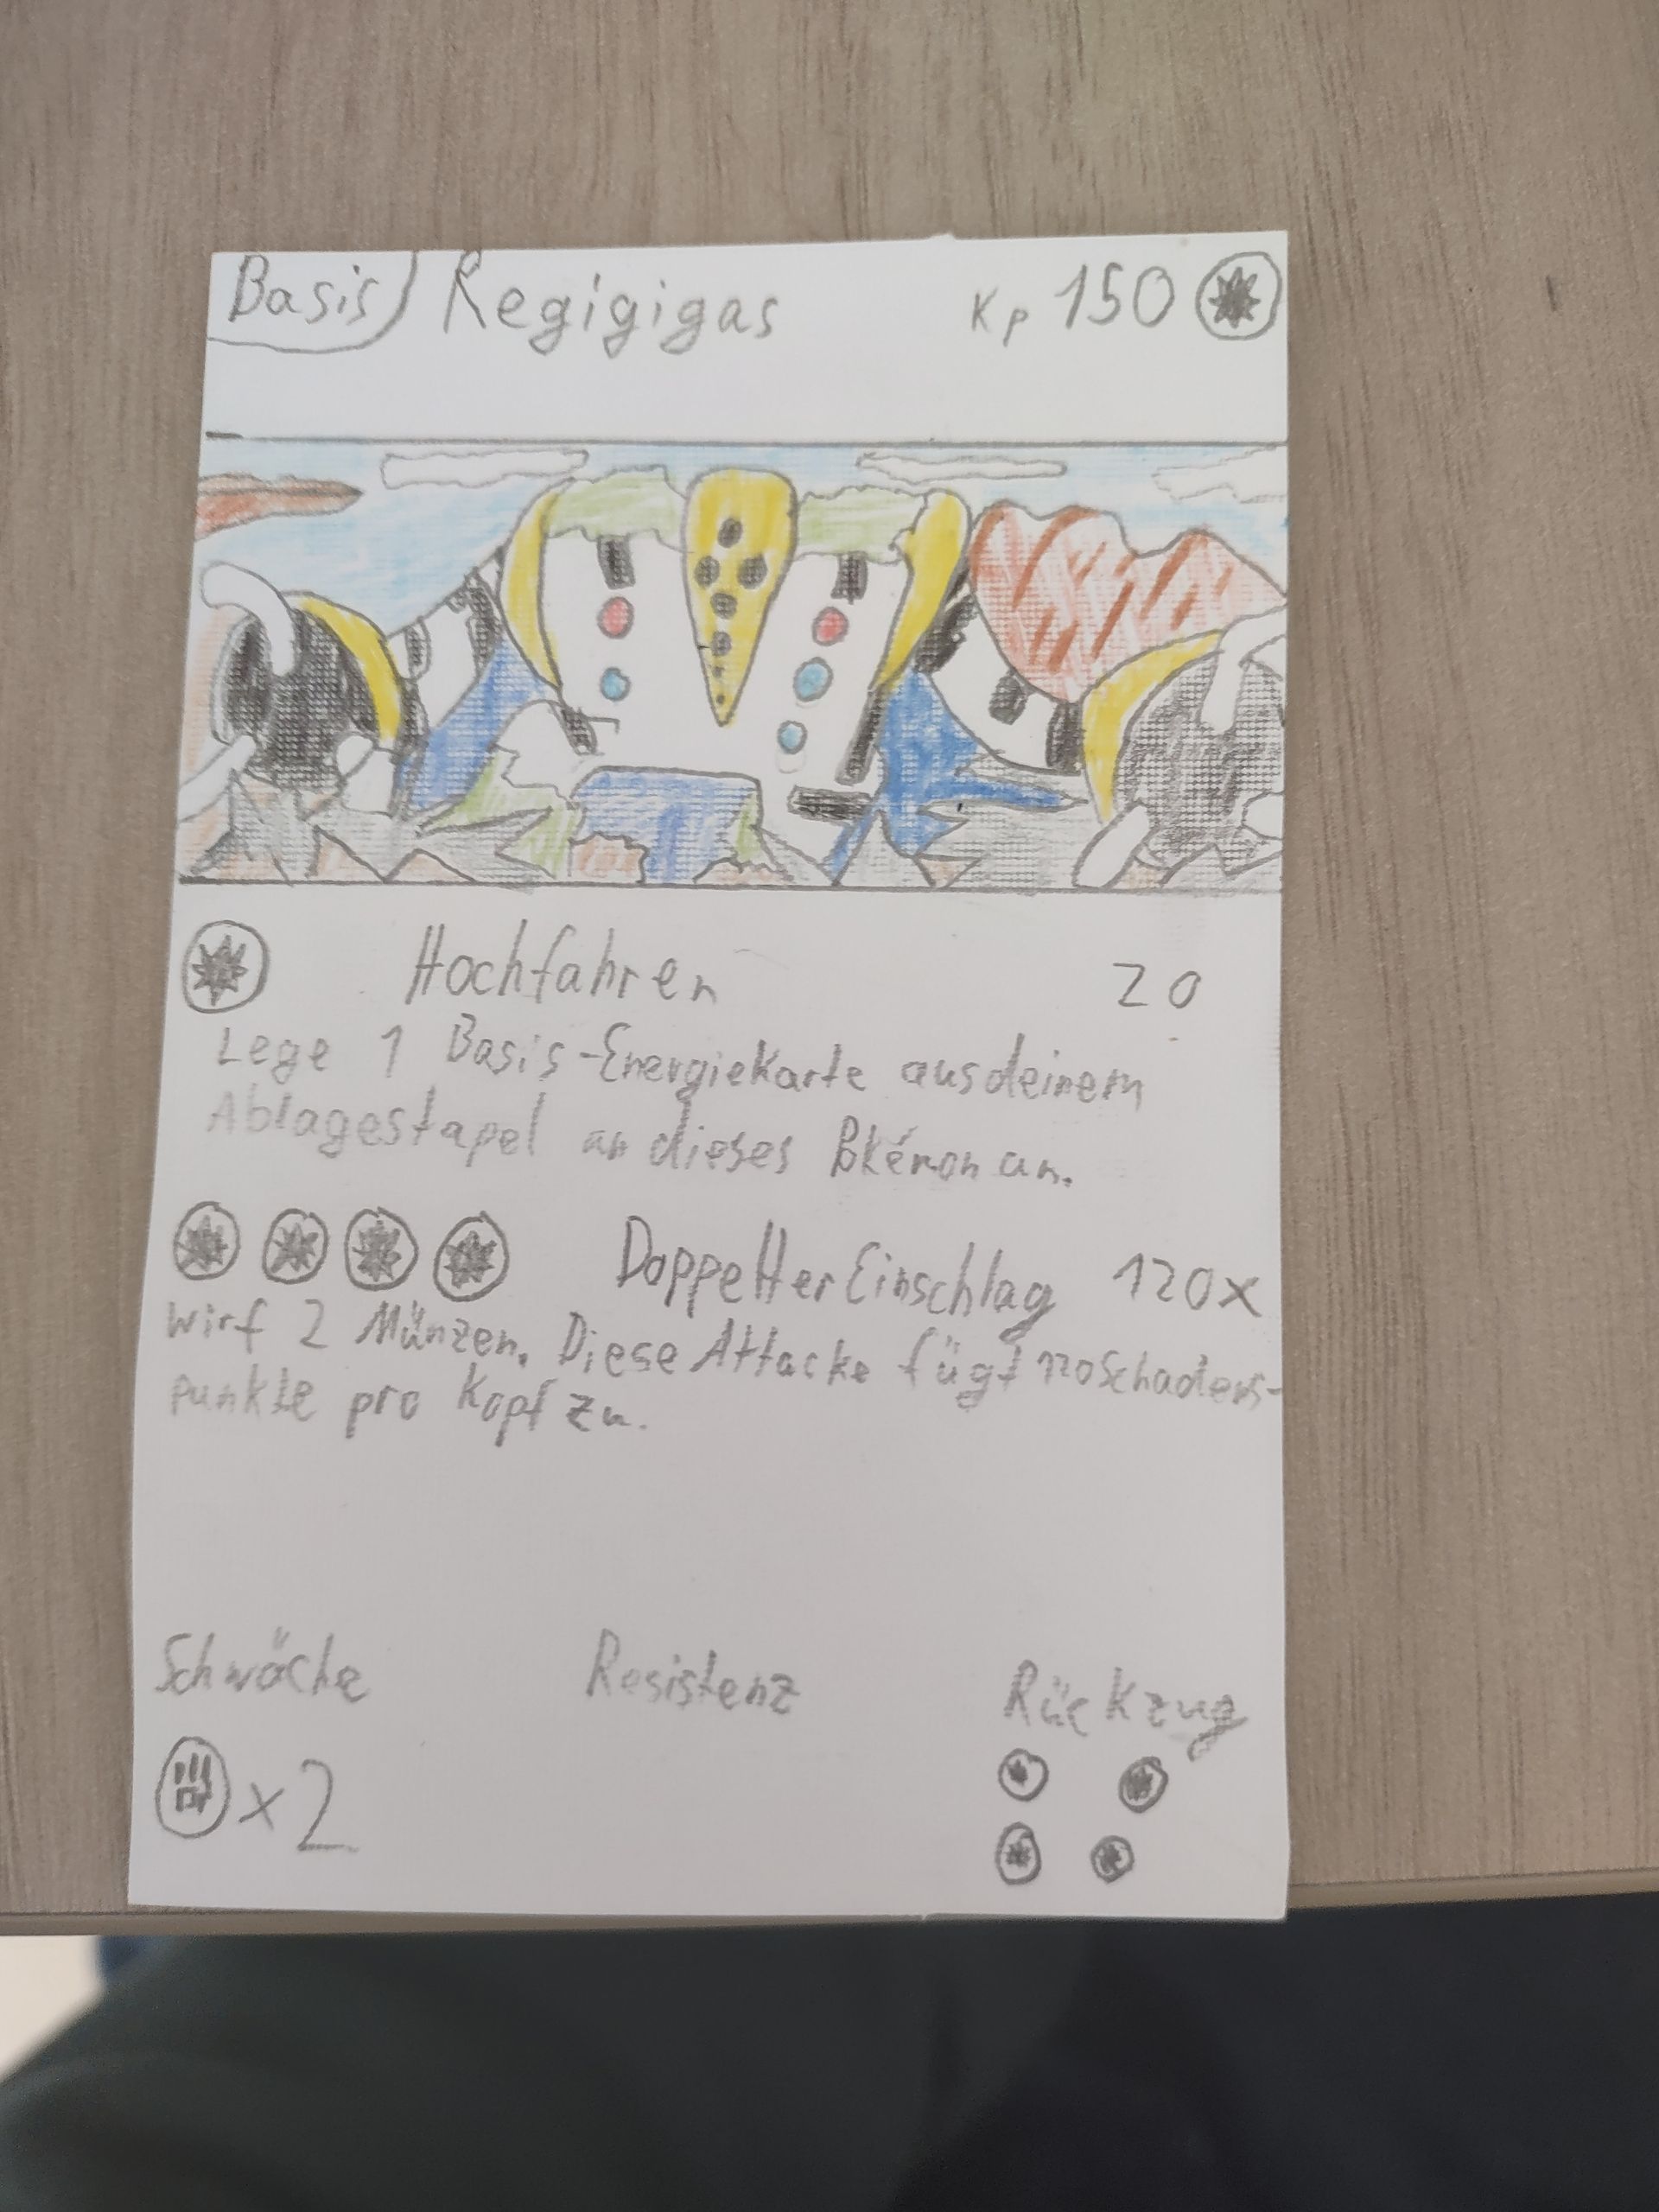 Basis Regigigas Kp 150
Hochfahren 20
Lege 1 Basis-Energiekarte aus deinem
Ablagestapel an dieses Pokémon an.
Doppelter Einschlag 120x
Wirf 2 Münzen. Diese Attacke fügt 120 Schadens-
punkte pro Kopf zu.
Schwäche Resistenz Rückzug
x2